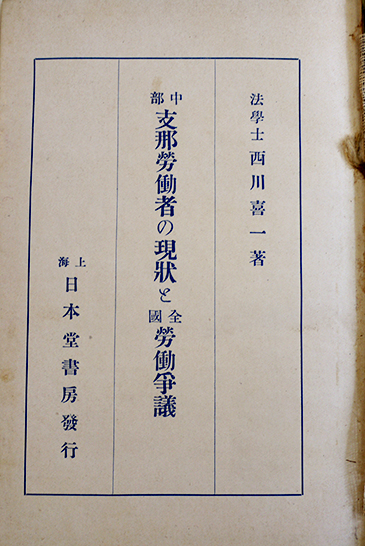 法學士 西川喜一著
中部 支那勞働者の現狀と 全國 勞働爭議
上海 日本堂書房發行